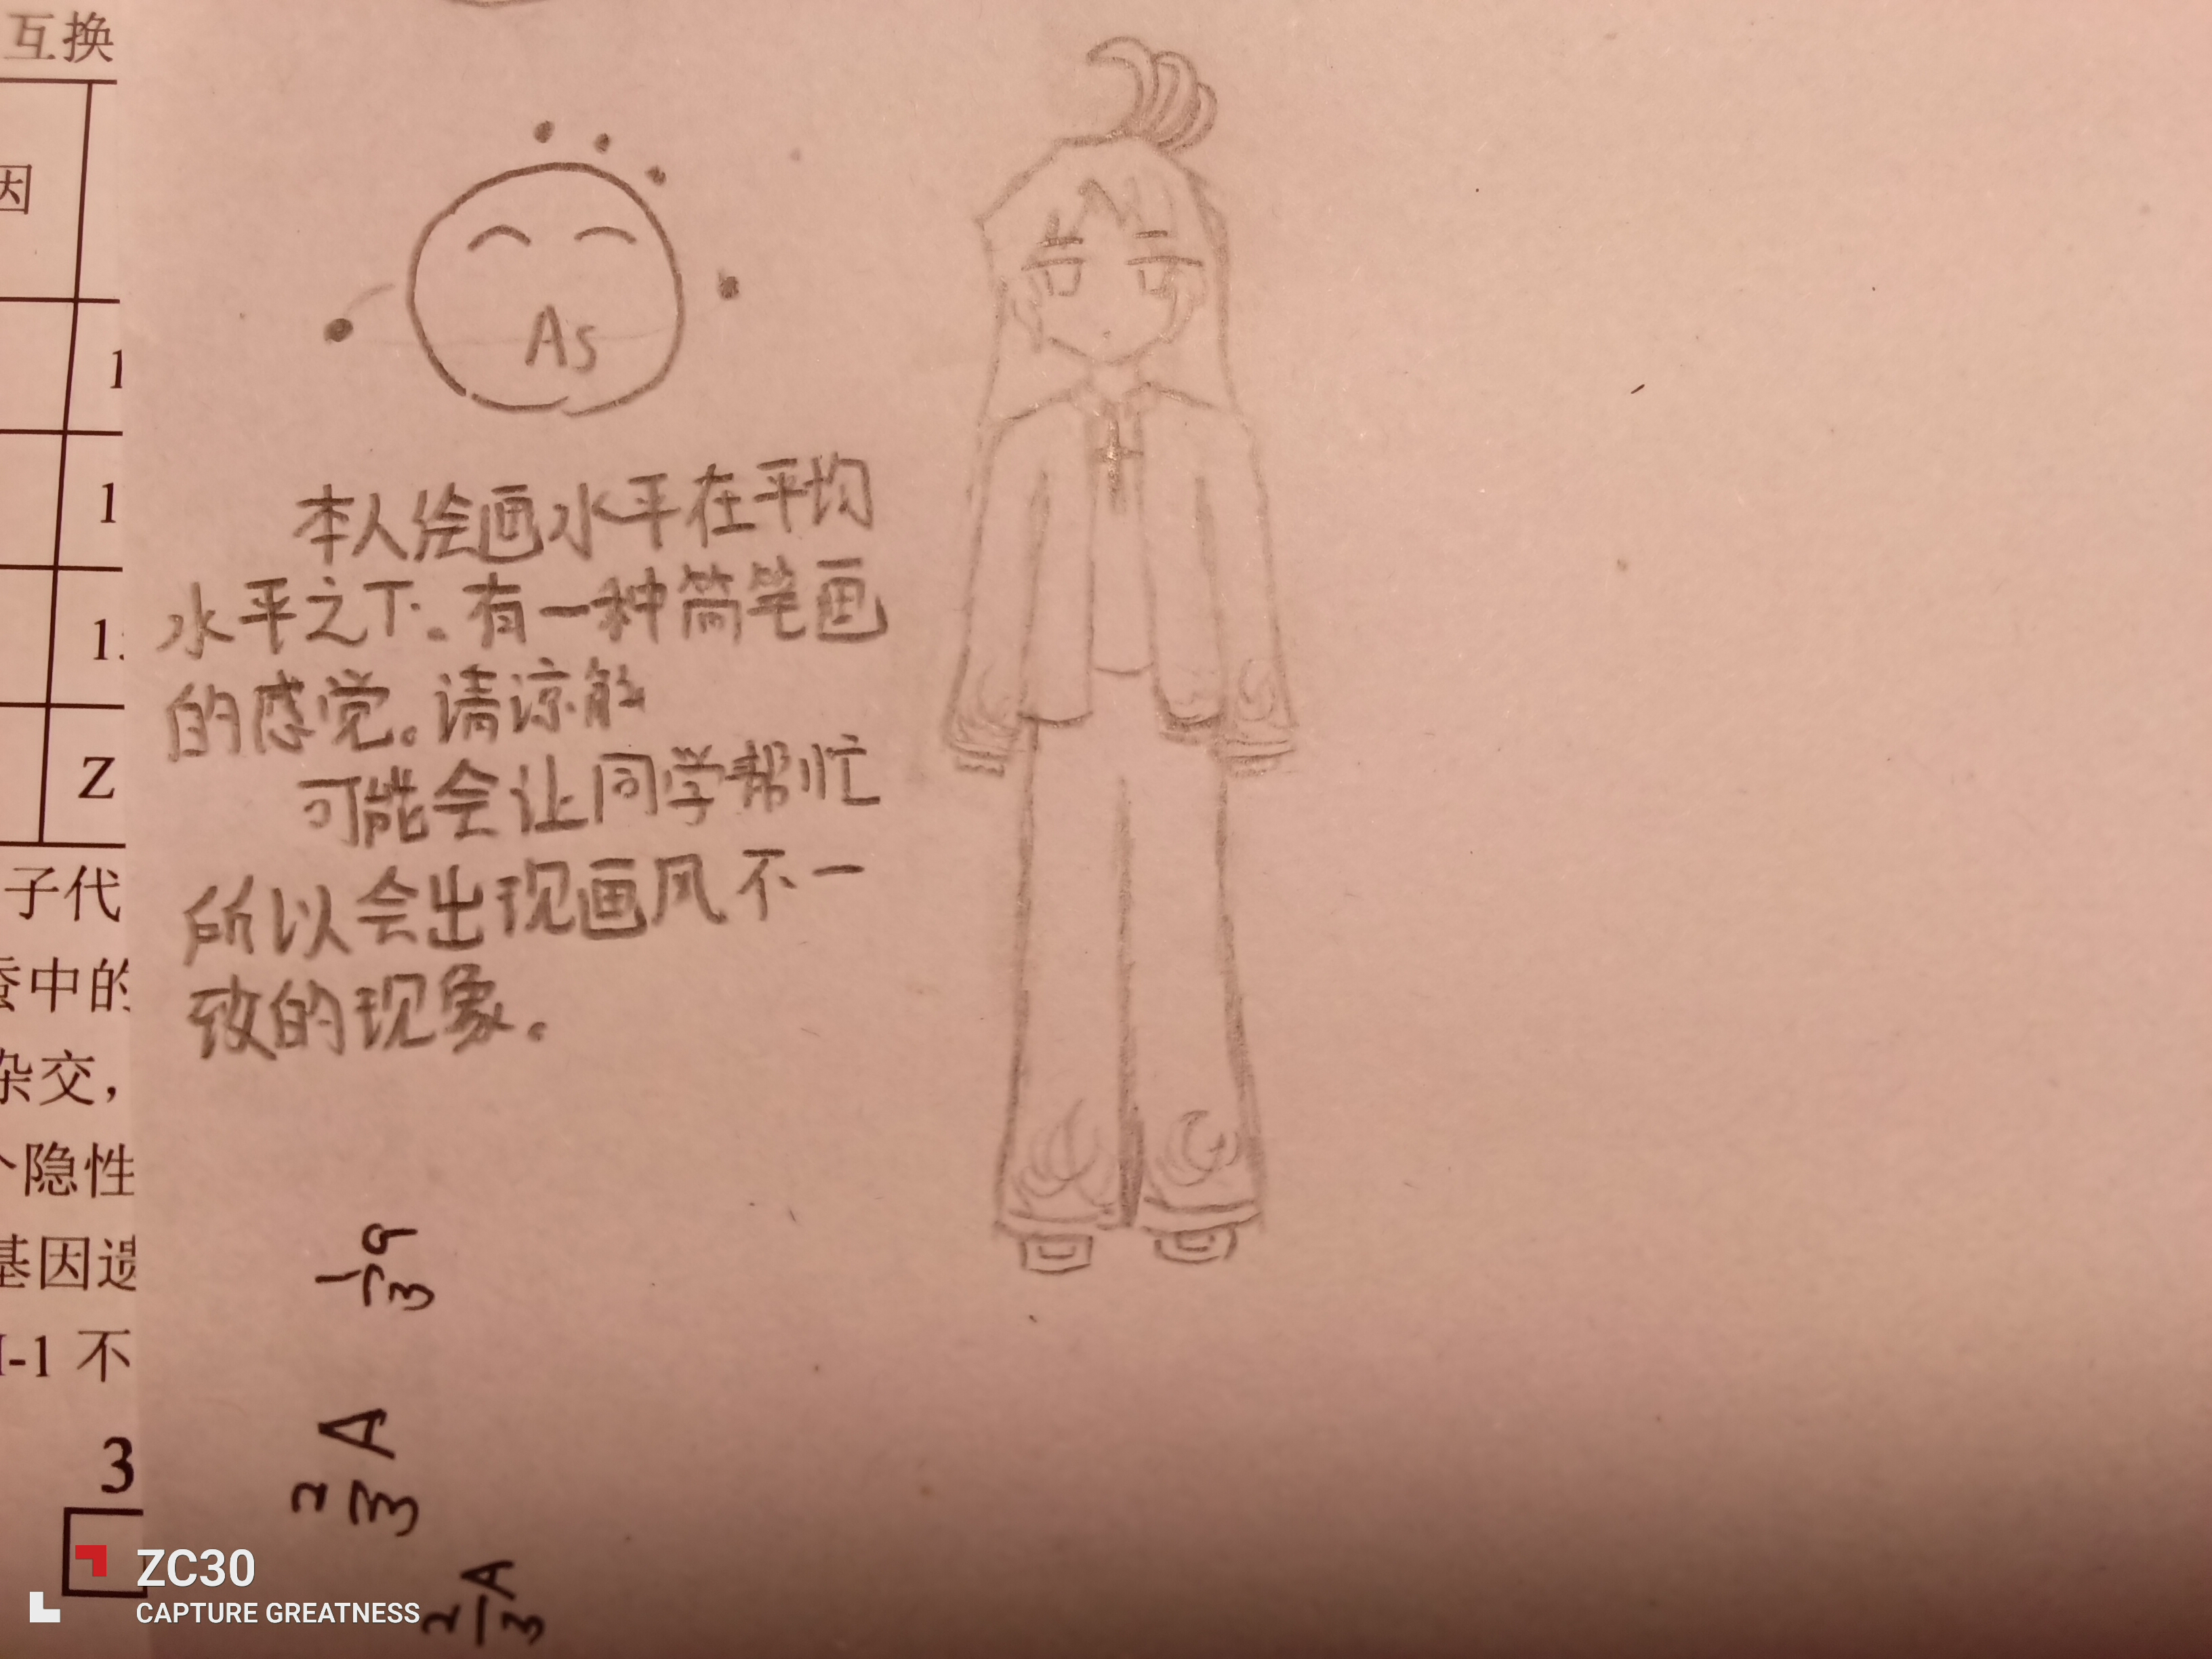 互换
因
1
1
1
Z
子代
中的
杂交，
个隐性
基因遗
-1 不
3
As
本人绘画水平在平均
水平之下。有一种简笔画
的感觉。请谅解
可能会让同学帮忙
所以会出现画风不一
致的现象。
1 9
3
A
2 3
2 A
3
ZC30
CAPTURE GREATNESS